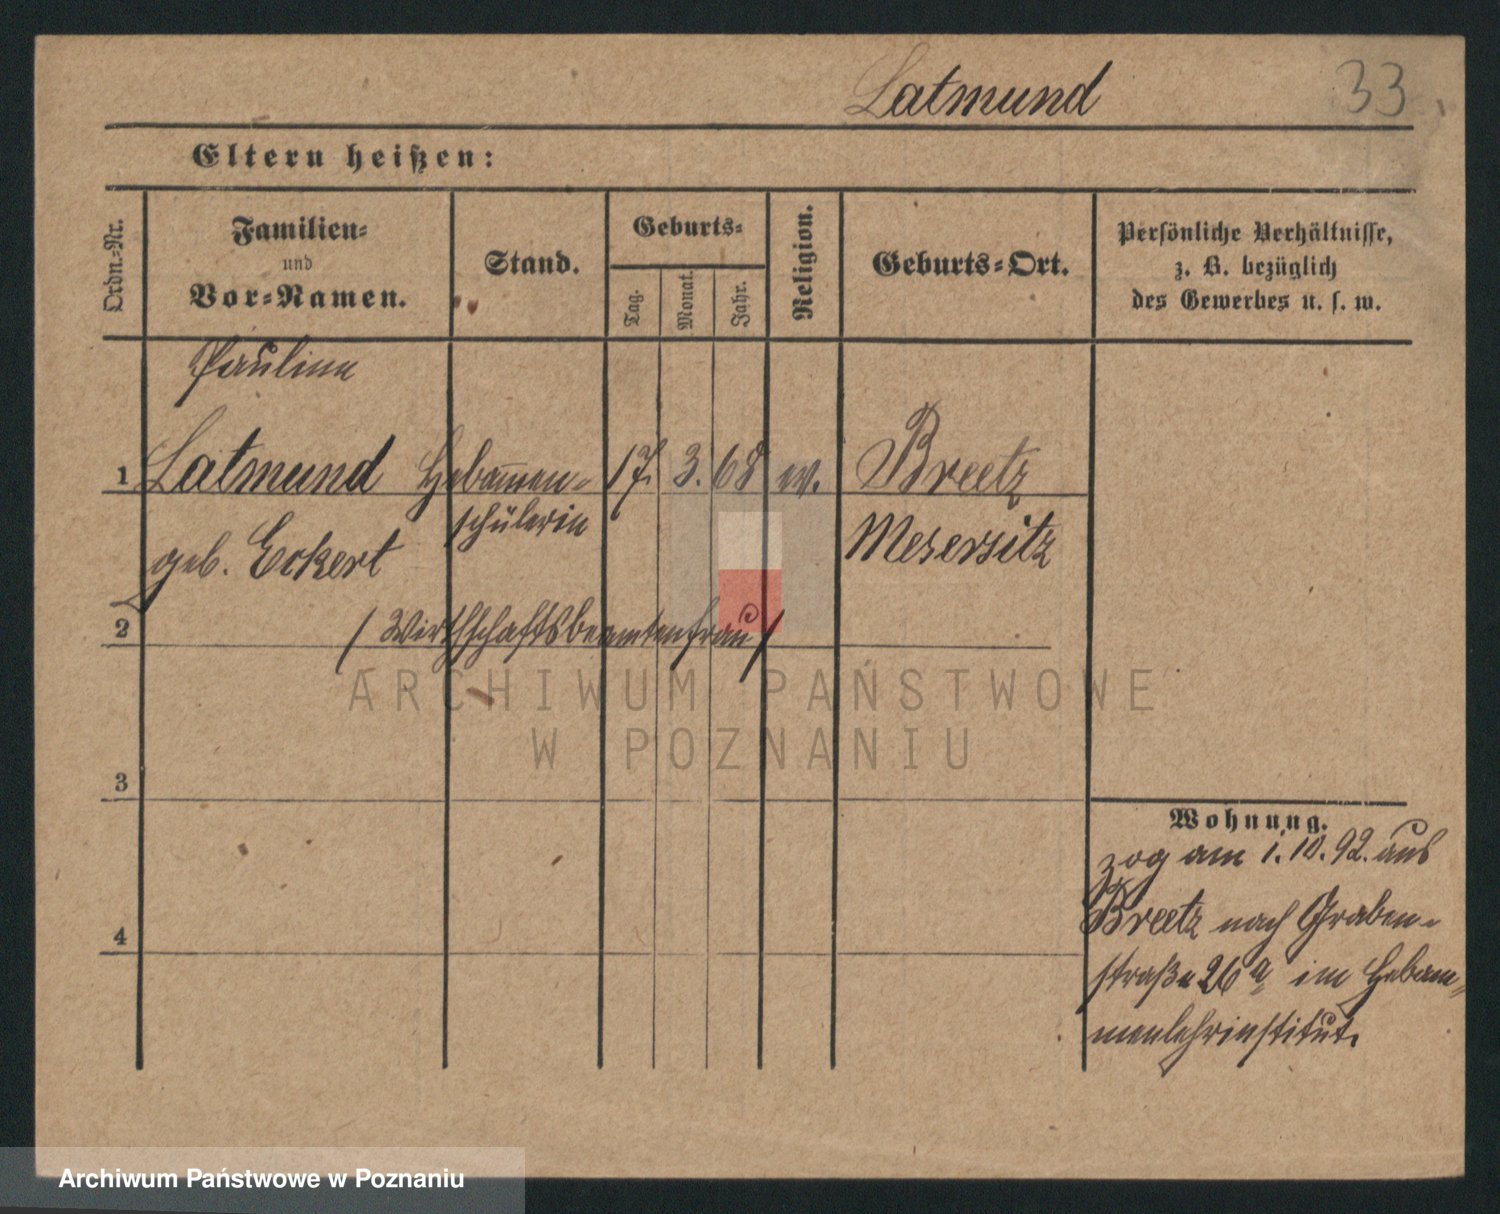 Latmund 33
Eltern heißen:
Ordn.-Nr.
Familien-
und
Vor-Namen.
Stand.
Geburts-
Tag.
Monat.
Jahr.
Religion.
Geburts-Ort.
Persönliche Verhältnisse,
z. B. bezüglich
des Gewerbes u. s. w.
Pauline
1 Latmund Hebam̄en- 17. 3. 68 ev. Breetz
geb. Eckert schülerin Meserzitz
2 (Wirthschaftsbeamtenfrau)
ARCHIWUM PAŃSTWOWE
W POZNANIU
3
4
Wohnung.
zog am 1.10.92. aus
Breetz nach Graben-
straße 26a im Hebam-
menlehrinstitut.
Archiwum Państwowe w Poznaniu